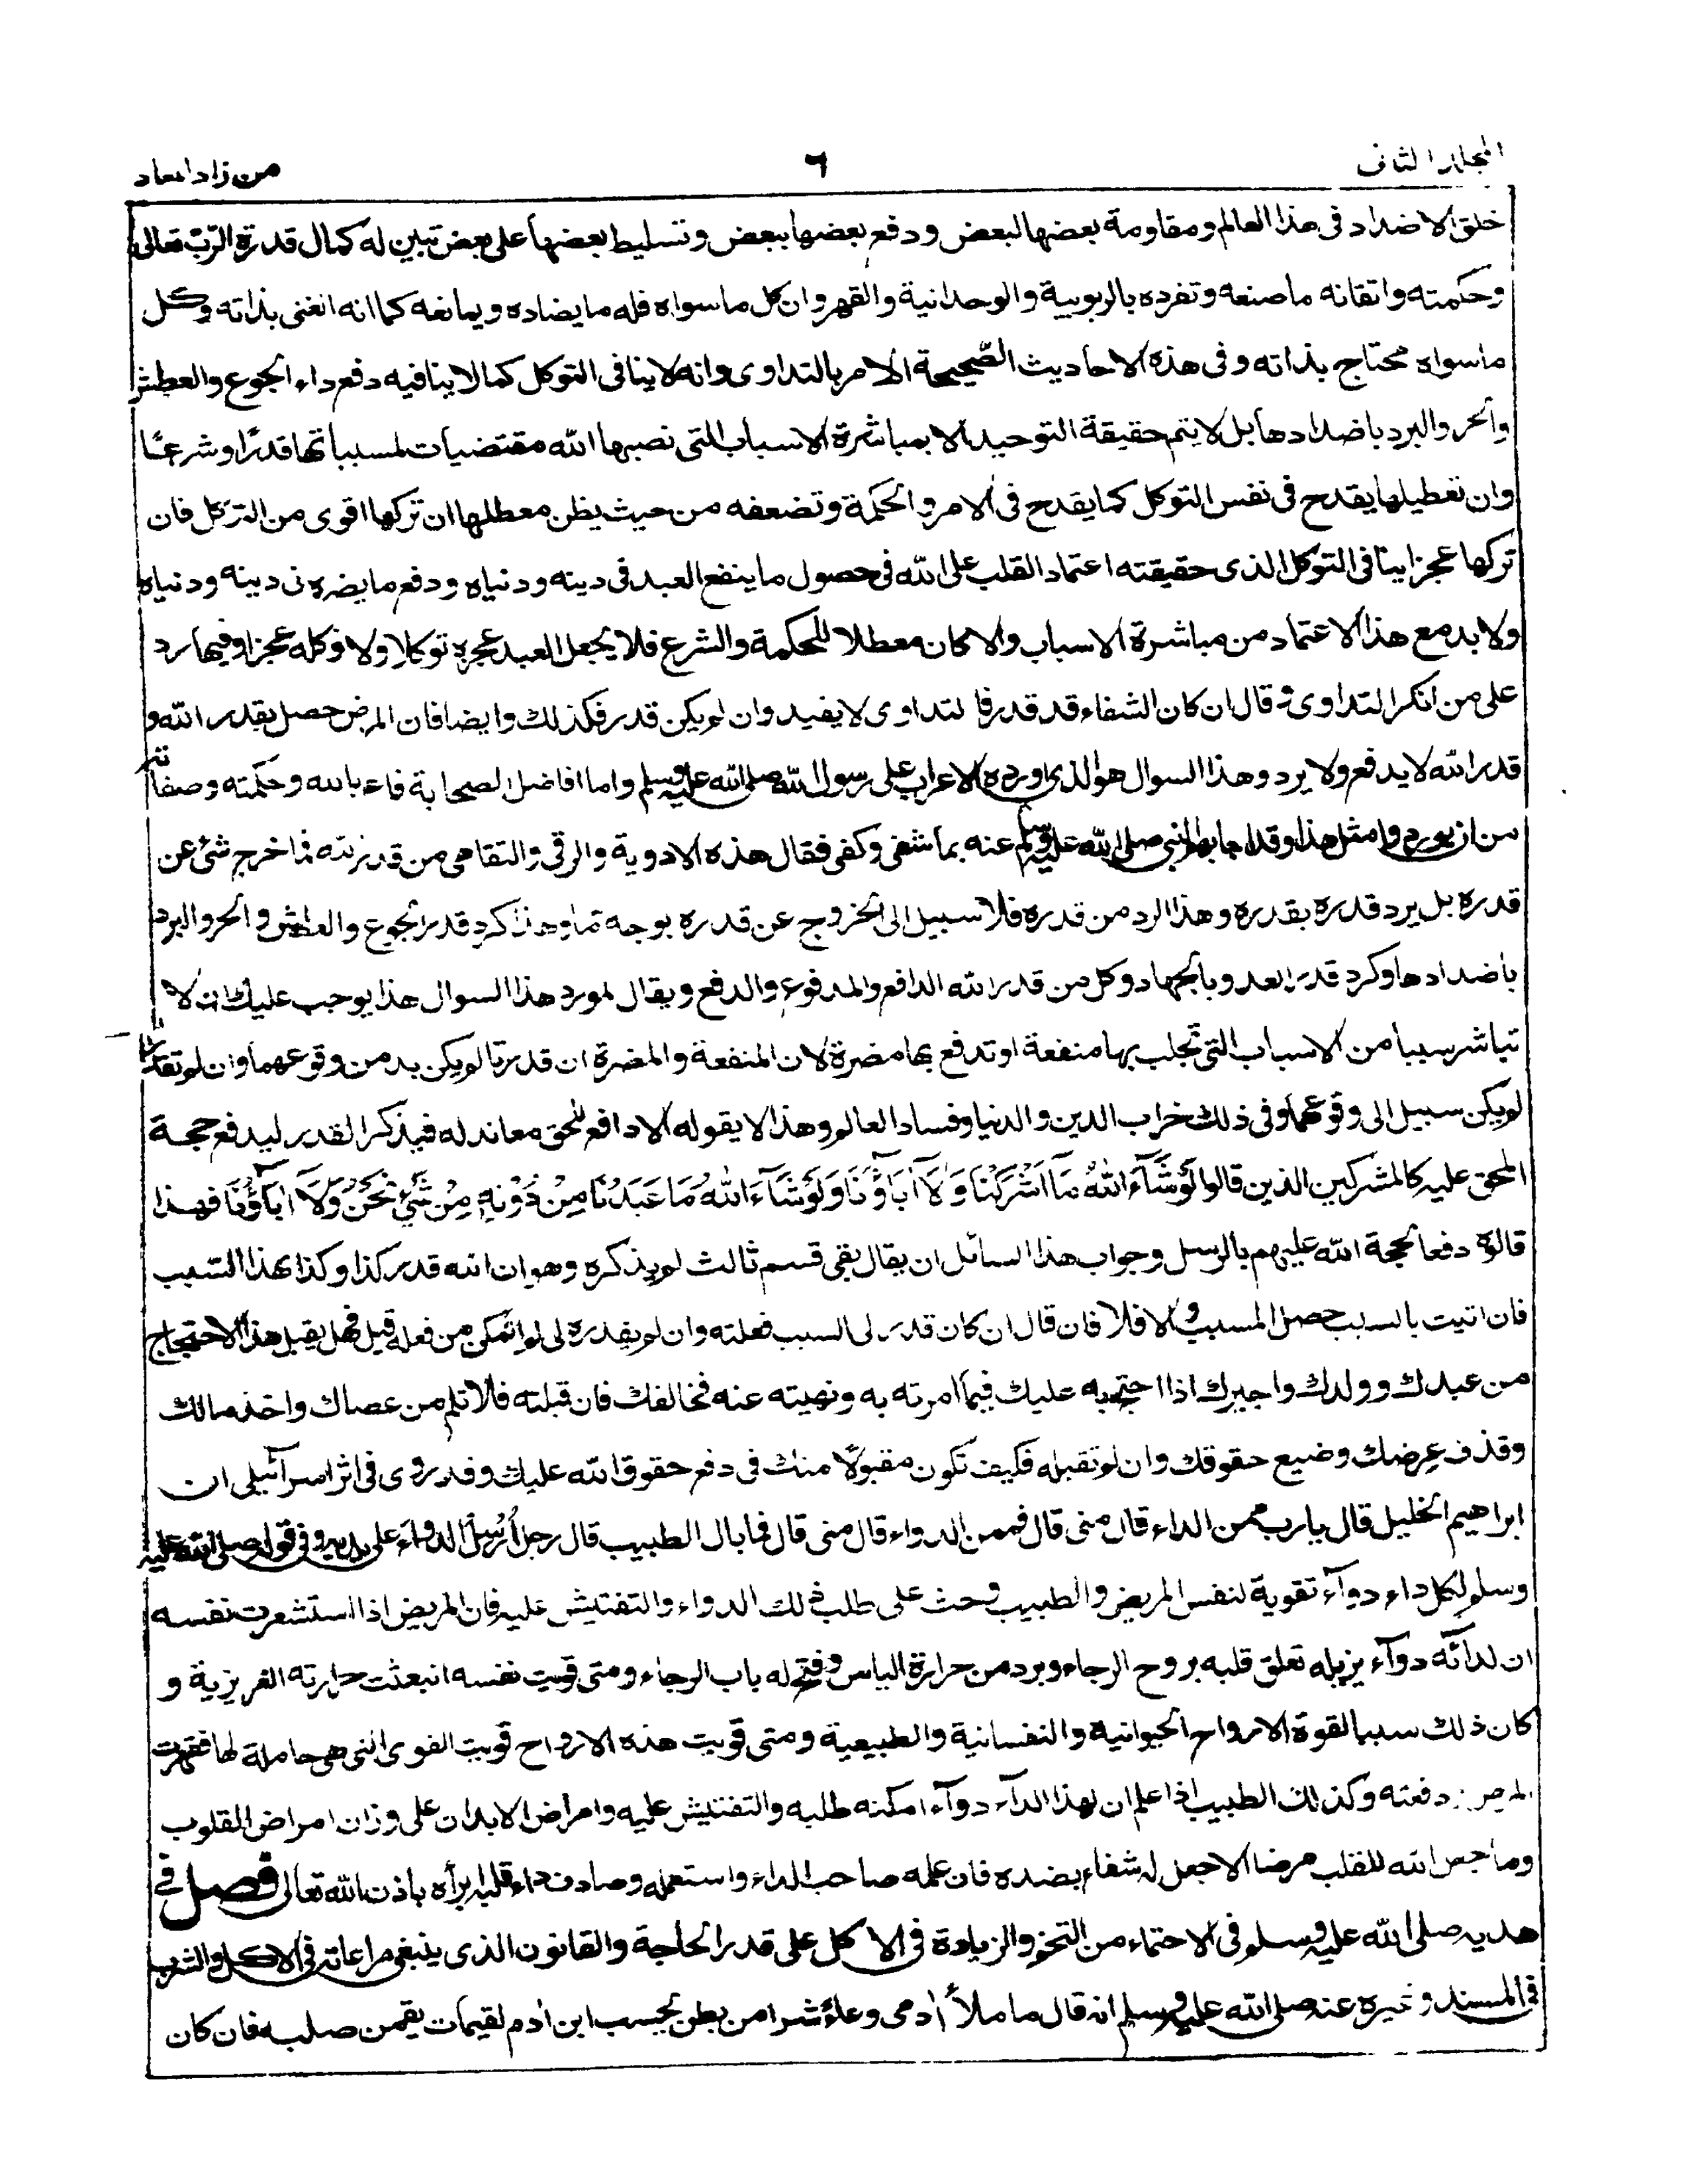 المجلد الثانى
٦
من زاد المعاد
خلق الاضداد فى هذا العالم ومقاومة بعضها لبعض ودفع بعضها ببعض وتسليط بعضها على بعض تبين له كمال قدرة الرب تعالى
وحكمته واتقانه ما صنعه وتفرده بالربوبية والوحدانية والقهر وان كل ما سواه فله ما يضاده ويمانعه كما انه الغنى بذاته وكل
ما سواه محتاج بذاته وفى هذه الاحاديث الصّحيحة الامر بالتداوى وانه لا ينافى التوكل كما لا ينافيه دفع داء الجوع والعطش
والحر والبرد باضدادها بل لا يتم حقيقة التوحيد الا بمباشرة الاسباب التى نصبها الله مقتضيات لمسبباتها قدرًا وشرعًا
وان تعطيلها يقدح فى نفس التوكل كما يقدح فى الامر والحكمة وتضعفه من حيث يظن معطلها ان تركها اقوى من التوكل فان
تركها عجز اينافى التوكل الذى حقيقته اعتماد القلب على الله فى حصول ما ينفع العبد فى دينه ودنياه ودفع ما يضره فى دينه ودنياه
ولا بد مع هذا الاعتماد من مباشرة الاسباب والا كان معطلا للحكمة والشرع فلا يجعل العبد عجزه توكلا ولا توكله عجزا وفيها رد
على من انكر التداوى وقال ان كان الشفاء قد قدر فالتداوى لا يفيد وان لم يكن قدر فكذلك وايضا فان المرض حصل بقدر الله و
قدر الله لا يدفع ولا يرد وهذا السوال هو الذى اورده الاعراب على رسول الله صلى الله عليه وسلم واما افاضل الصحابة فاعلم بالله وحكمته وصفاته
من ان يوردوا مثل هذا وقد اجابهم النبى صلى الله عليه وسلم عنه بما شفى وكفى فقال هذه الادوية والرقى والتقاهى من قدر الله فما خرج شئ عن
قدره بل يرد قدره بقدره وهذا الرد من قدره فلا سبيل الى الخروج عن قدره بوجه ما وهذا كرد قدر الجوع والعطش والحر والبرد
باضدادها وكرد قدر العدو بالجهاد وكل من قدر الله الدافع والمدفوع والدفع ويقال لمورد هذا السوال هذا يوجب عليك ان لا
تباشر سببا من الاسباب التى تجلب بها منفعة او تدفع بها مضرة لان المنفعة والمضرة ان قدرتا لم يكن بد من وقوعهما وان لم تقدرا
لم يكن سبيل الى وقوعهما وفى ذلك خراب الدين والدنيا وفساد العالم وهذا لا يقوله الا دافع للحق معاند له فيذكر القدر ليدفع حجة
المحق عليه كالمشركين الذين قالوا لَوْ شَآءَ اللهُ مَآ اَشْرَكْنَا وَلَآ اٰبَآؤُنَا وَلَوْ شَآءَ اللهُ مَا عَبَدْنَا مِنْ دُوْنِهٖ مِنْ شَیْءٍ نَحْنُ وَلَآ اٰبَآؤُنَا فهذا
قالوه دفعا لحجة الله عليهم بالرسل وجواب هذا السائل ان يقال بقى قسم ثالث لم يذكره وهو ان الله قدر كذا وكذا بهذا السّبب
فان اتيت بالسبب حصل المسبب والا فلا فان قال ان كان قدر لى السبب فعلته وان لم يقدره لى لم اتمكن من فعله قيل فهل يقبل هذا الاحتجاج
من عبدك وولدك واجيرك اذا احتج به عليك فيما امرته به ونهيته عنه فخالفك فان قبلته فلا تلم من عصاك واخذ مالك
وقذف عرضك وضيع حقوقك وان لم تقبله فكيف تكون مقبولًا منك فى دفع حقوق الله عليك وقد روى فى اثر اسرآئيلى ان
ابراهيم الخليل قال يارب ممن الداء قال منى قال فممن الدواء قال منى قال فما بال الطبيب قال رجل اُرسل الدواء على يديه وفى قوله صلى الله عليه
وسلم لكل داء دوآء تقوية لنفس المريض والطبيب وحث على طلب ذلك الدواء والتفتيش عليه فان المريض اذا استشعرت نفسه
ان لدائه دوآء يزيله تعلق قلبه بروح الرجاء وبرد من حرارة الياس وفتح له باب الرجاء ومتى قويت نفسه انبعثت حرارته الغريزية و
كان ذلك سببا لقوة الارواح الحيوانية والنفسانية والطبيعية ومتى قويت هذه الارواح قويت القوى التى هى حاملة لها فقهرت
المرض دفعته وكذلك الطبيب اذا علم ان لهذا الدآء دوآء امكنه طلبه والتفتيش عليه وامراض الابدان على وزان امراض القلوب
وما جعل الله للقلب مرضا الا جعل له شفاء بضده فان علمه صاحب الداء واستعمله وصادف داء قلبه ابرأه باذن الله تعالى فصل فى
هديه صلى الله عليه وسلم فى الاحتماء من التخم والزيادة فى الاكل على قدر الحاجة والقانون الذى ينبغى مراعاته فى الاكل والشرب
فى المسند وغيره عنه صلى الله عليه وسلم انه قال ما ملأ اٰدمى وعاءً شرا من بطن بحسب ابن اٰدم لقيمات يقمن صلبه فان كان